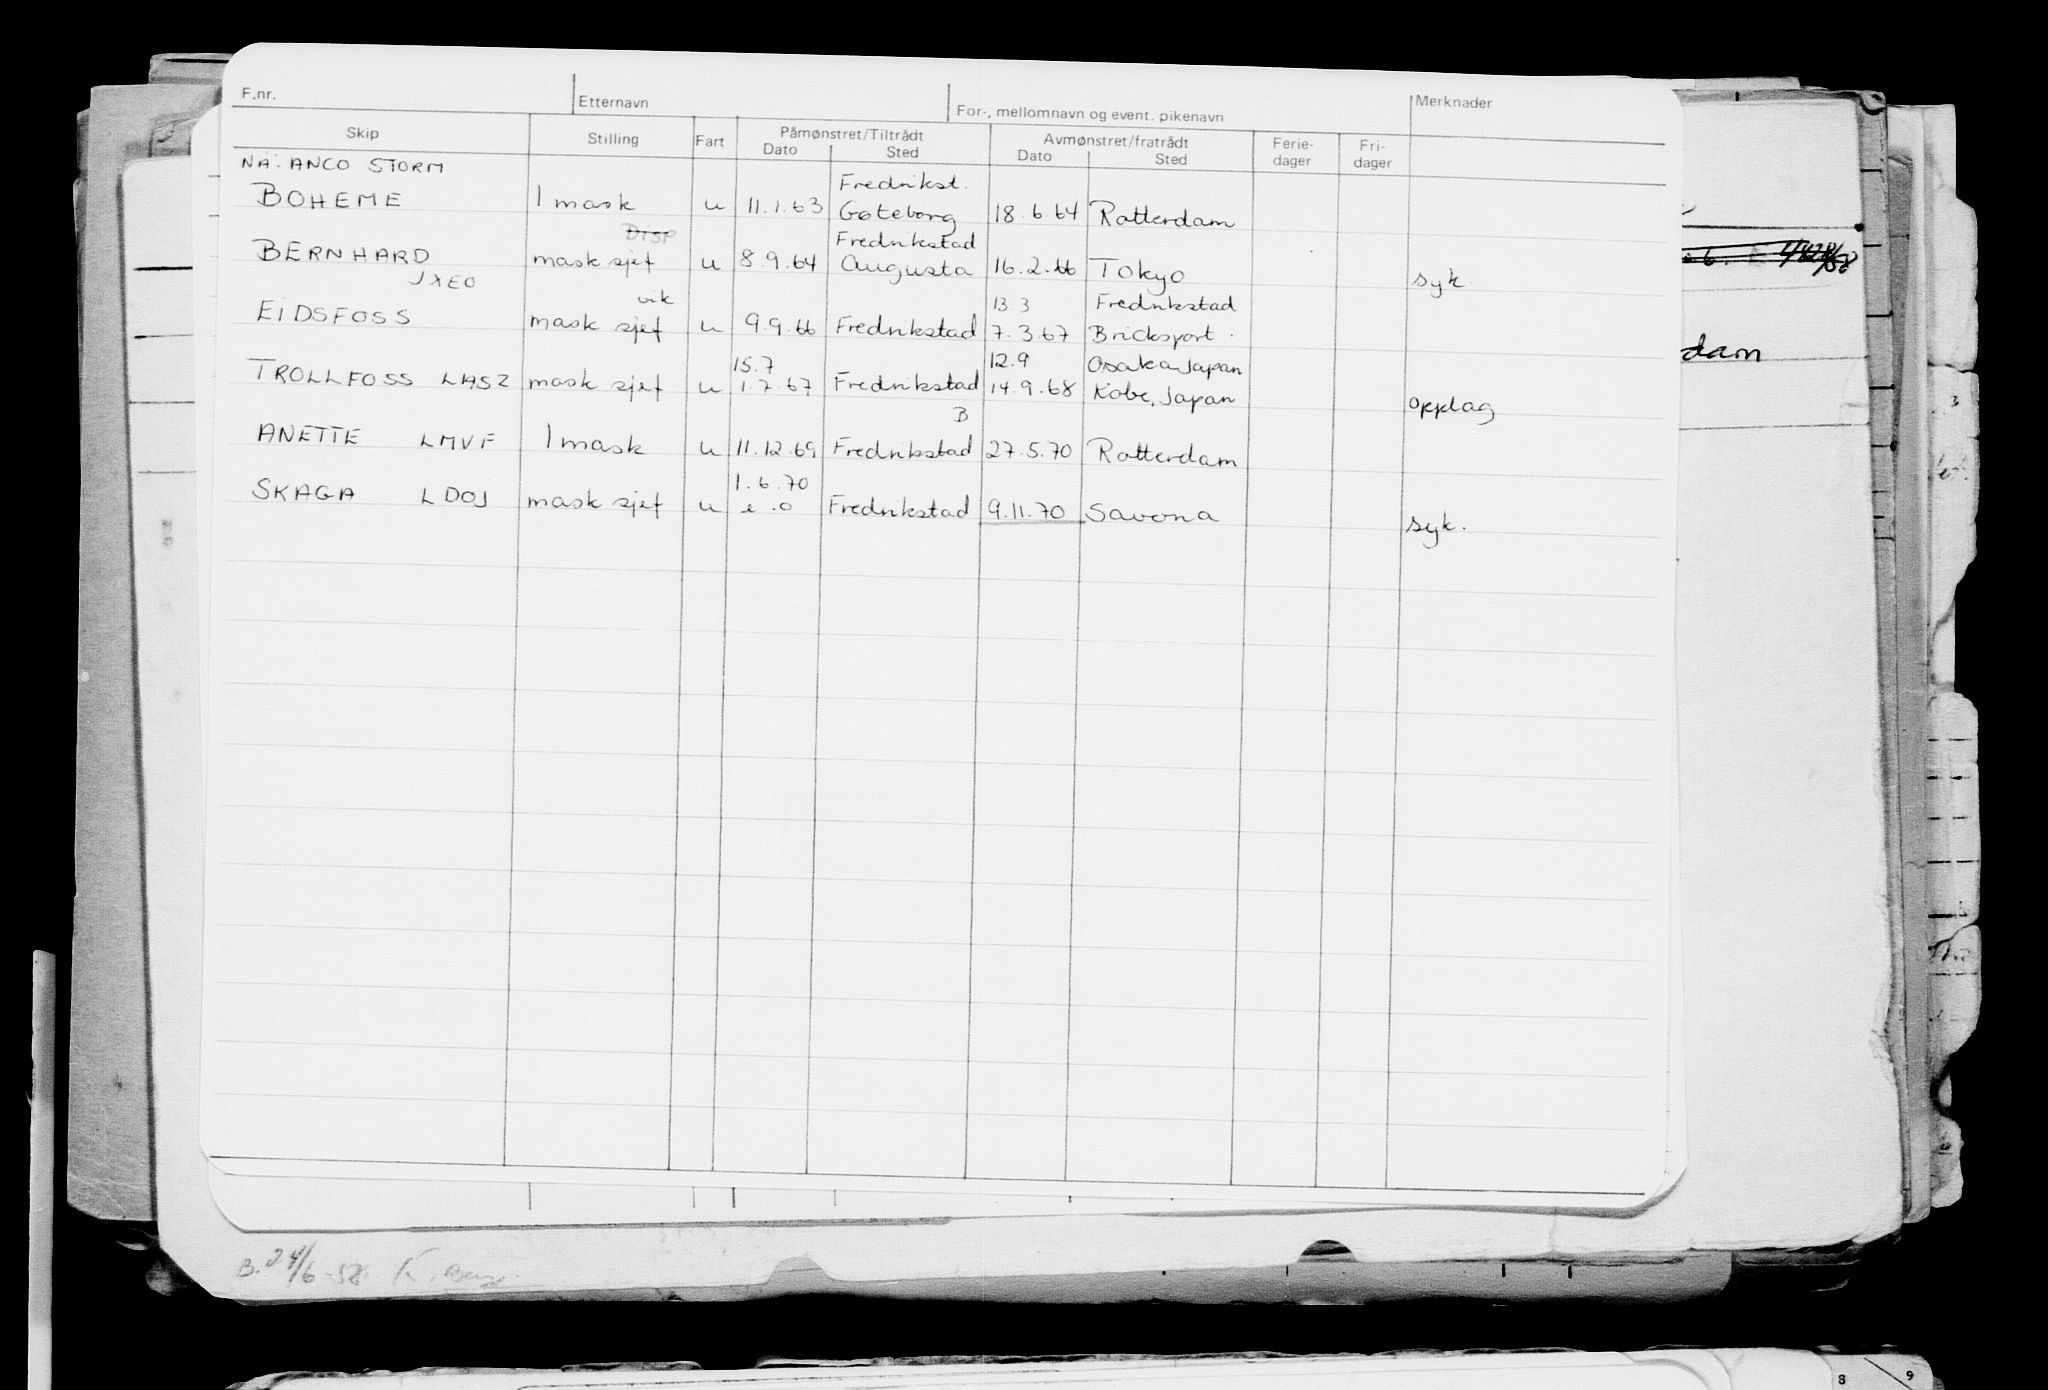 F.nr. Etternavn For-, mellomnavn og event. pikenavn Merknader
Skip Stilling Fart Påmønstret/Tiltrådt Avmønstret/fratrådt Ferie- Fri-
Dato Sted Dato Sted dager dager
NÅ: ANCO STORM Fredrikst.
BOHEME 1 mask u 11.1.63 Gøteborg 18.6.64 Rotterdam
DISP Fredrikstad
BERNHARD mask sjef u 8.9.64 Augusta 16.2.66 Tokyo syk.
JXEO
vik 13.3 Fredrikstad
EIDSFOSS mask sjef u 9.9.66 Fredrikstad 7.3.67 Bricksport.
15.7 12.9 Osaka, Japan
TROLLFOSS LASZ mask sjef u 1.7.67 Fredrikstad 14.9.68 Kobe, Japan opplag
B
ANETTE LMVF 1 mask u 11.12.69 Fredrikstad 27.5.70 Rotterdam
1.6.70
SKAGA LDOJ mask sjef u e.o Fredrikstad 9.11.70 Savona syk.
dam
B. 24/6-58. K.
8 9